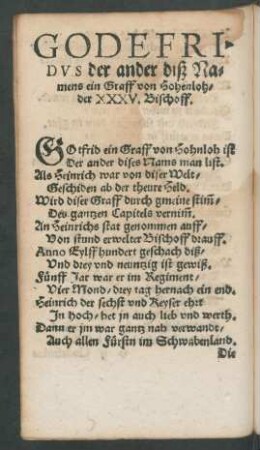 GODEFRI-
DVS der ander diß Na-
mens ein Graff von Hohenloh-
der XXXV. Bischoff.
GOtfrid ein Graff von Hohnloh ist
Der ander dises Nams man list.
Als Heinrich war von diser Welt/
Geschiden ab der theure Held.
Wird diser Graff durch gmeine stim̃/
Deß gantzen Capitels vernim̃.
An Heinrichs stat genommen auff/
Von stund erwelter Bischoff drauff.
Anno Eylff hundert geschach diß/
Vnd drey vnd neuntzig ist gewiß.
Fünff Jar war er im Regiment/
Vier Mond/ drey tag hernach ein end.
Heinrich der sechst vnd Keyser ehrt
In hoch/ het jn auch lieb vnd werth.
Dann er jm war gantz nah verwandt/
Auch allen Fürstn im Schwabenland.
Die